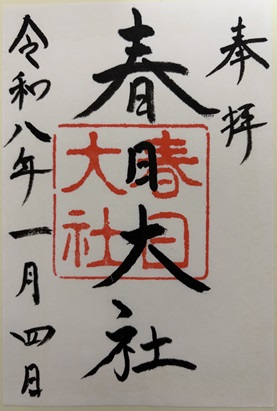 奉拝
春日大社
春日大社
令和八年一月四日